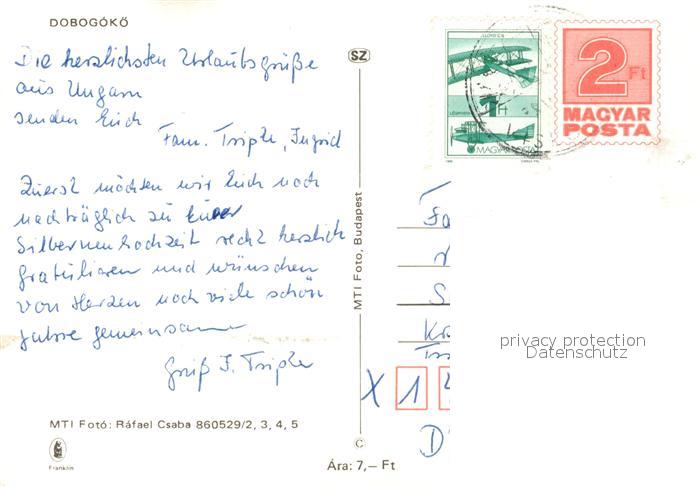 DOBOGÓKŐ
Die herzlichsten Urlaubsgrüße
aus Ungarn
senden Euch
Fam. Tripke, Ingrid
Zuerst möchten wir Euch noch
nachträglich zu Eurer
Silbernen Hochzeit recht herzlich
gratulieren und wünschen
von Herzen noch viele schöne
Jahre gemeinsam
Gruß I. Tripke
MTI Fotó: Ráfael Csaba 860529/2, 3, 4, 5
Franklin
SZ
MTI Foto, Budapest
©
Ára: 7,– Ft
1 Ft
MAGYAR POSTA
2 Ft
MAGYAR
POSTA
Fa
S
X 1
D
privacy protection
Datenschutz